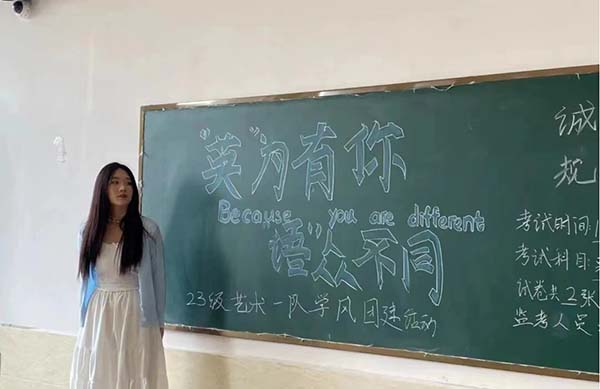 "英"为有你
Because you are different
"语"众不同
23级艺术一队学风团建活动
诚
规
考试时间:
考试科目:
试卷共2张
监考人员